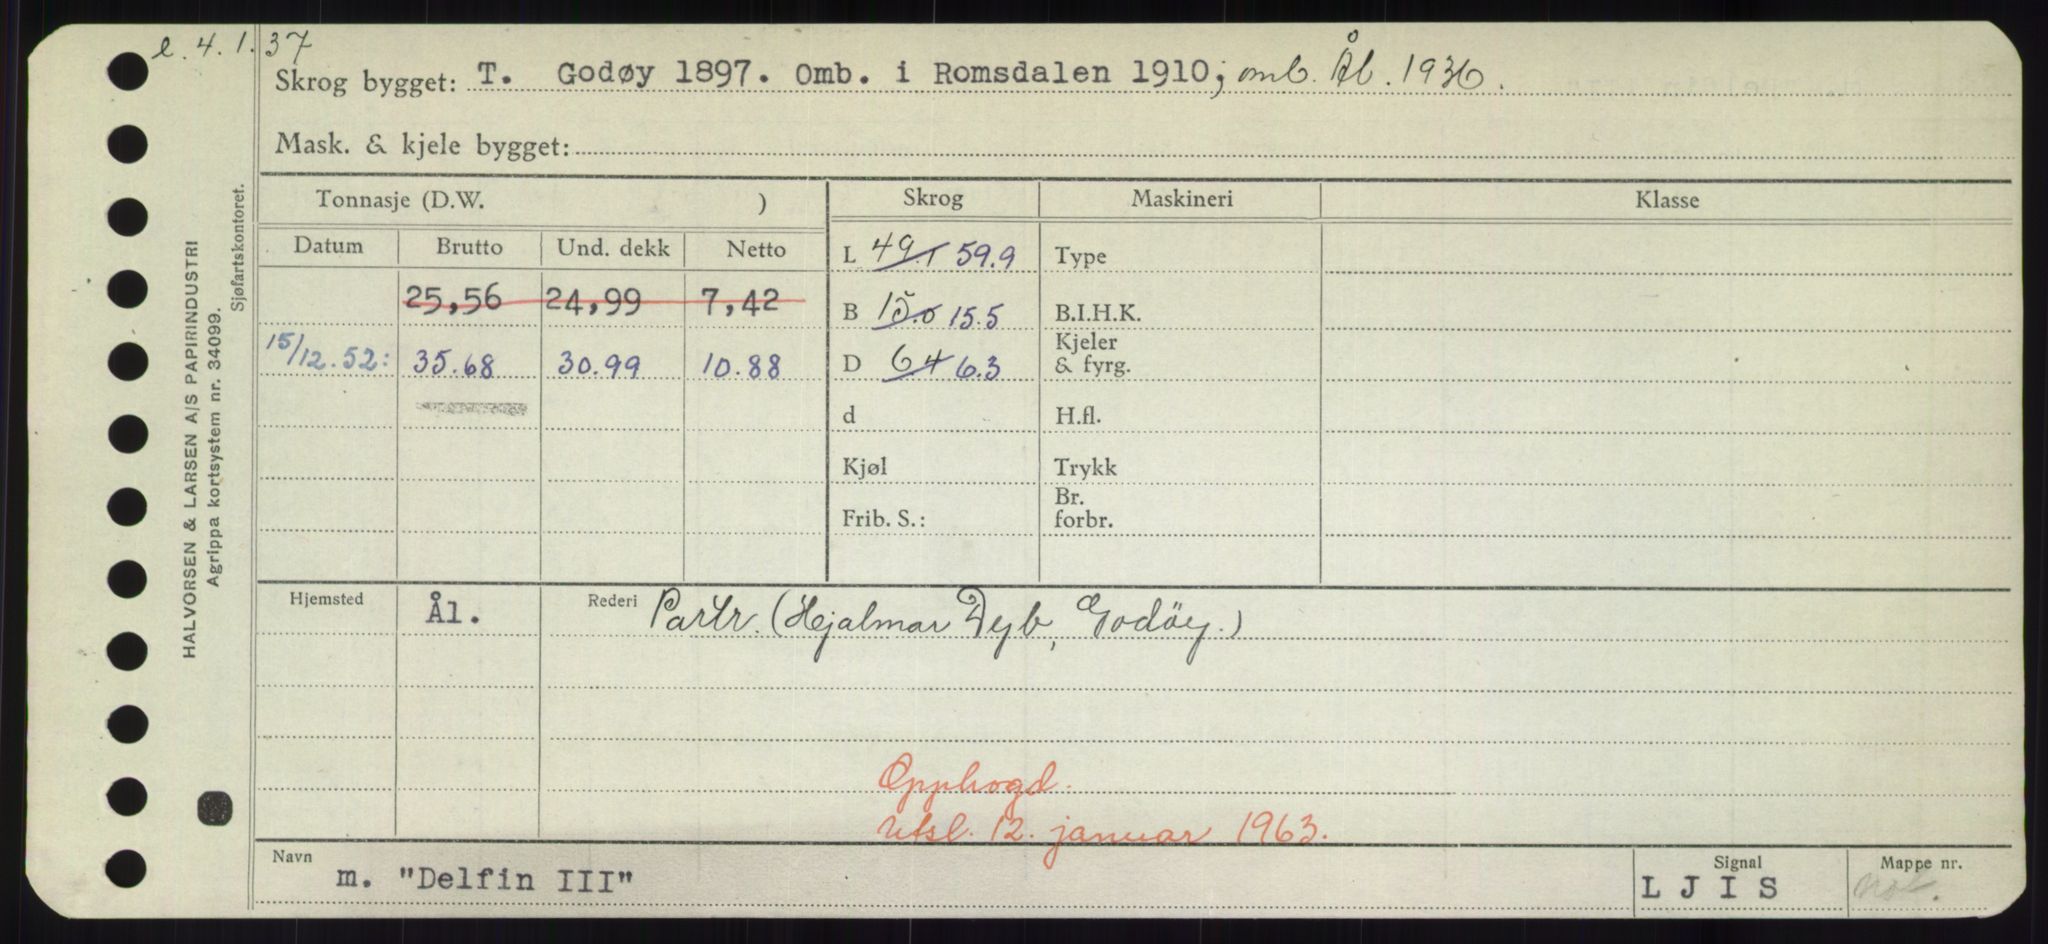 e. 4. 1. 37
Skrog bygget: T. Godøy 1897. Omb. i Romsdalen 1910; omb. Ål. 1936.
Mask. & kjele bygget:
Tonnasje (D.W. ) Skrog Maskineri Klasse
Datum Brutto Und. dekk Netto
L 49.1 59.9 Type
25,56 24,99 7,42
B 15.6 15.5 B.I.H.K.
15/12.52: 35.68 30.99 10.88
D 6.4 6.3 Kjeler & fyrg.
d H.fl.
Kjøl Trykk
Frib. S.: Br. forbr.
Hjemsted Ål. Rederi Partr. (Hjalmar Dyb, Godöy.)
Opphogd.
Utsl. 12. januar 1963.
Navn m. "Delfin III" Signal L J I S Mappe nr.
HALVORSEN & LARSEN A/S PAPIRINDUSTRI
Agrippa kortsystem nr. 34099.
Sjøfartskontoret.